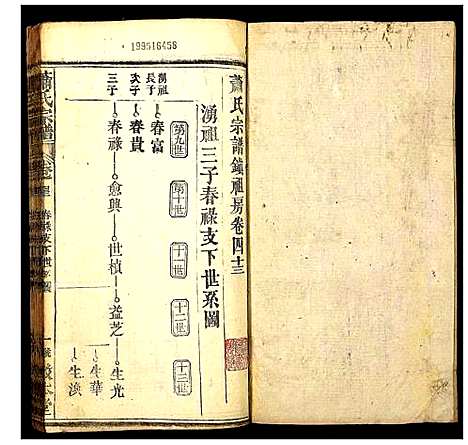 199516458
蕭氏宗譜鎮祖房卷四十三
湧祖三子春祿支下世系圖
第九世
第十世
十一世
十二世
十三世
湧祖
長子
春富
次子
春貴
三子
春祿
愈興
世楨
益芝
生光
生華
生渙
蕭氏宗譜
春祿支下世系圖